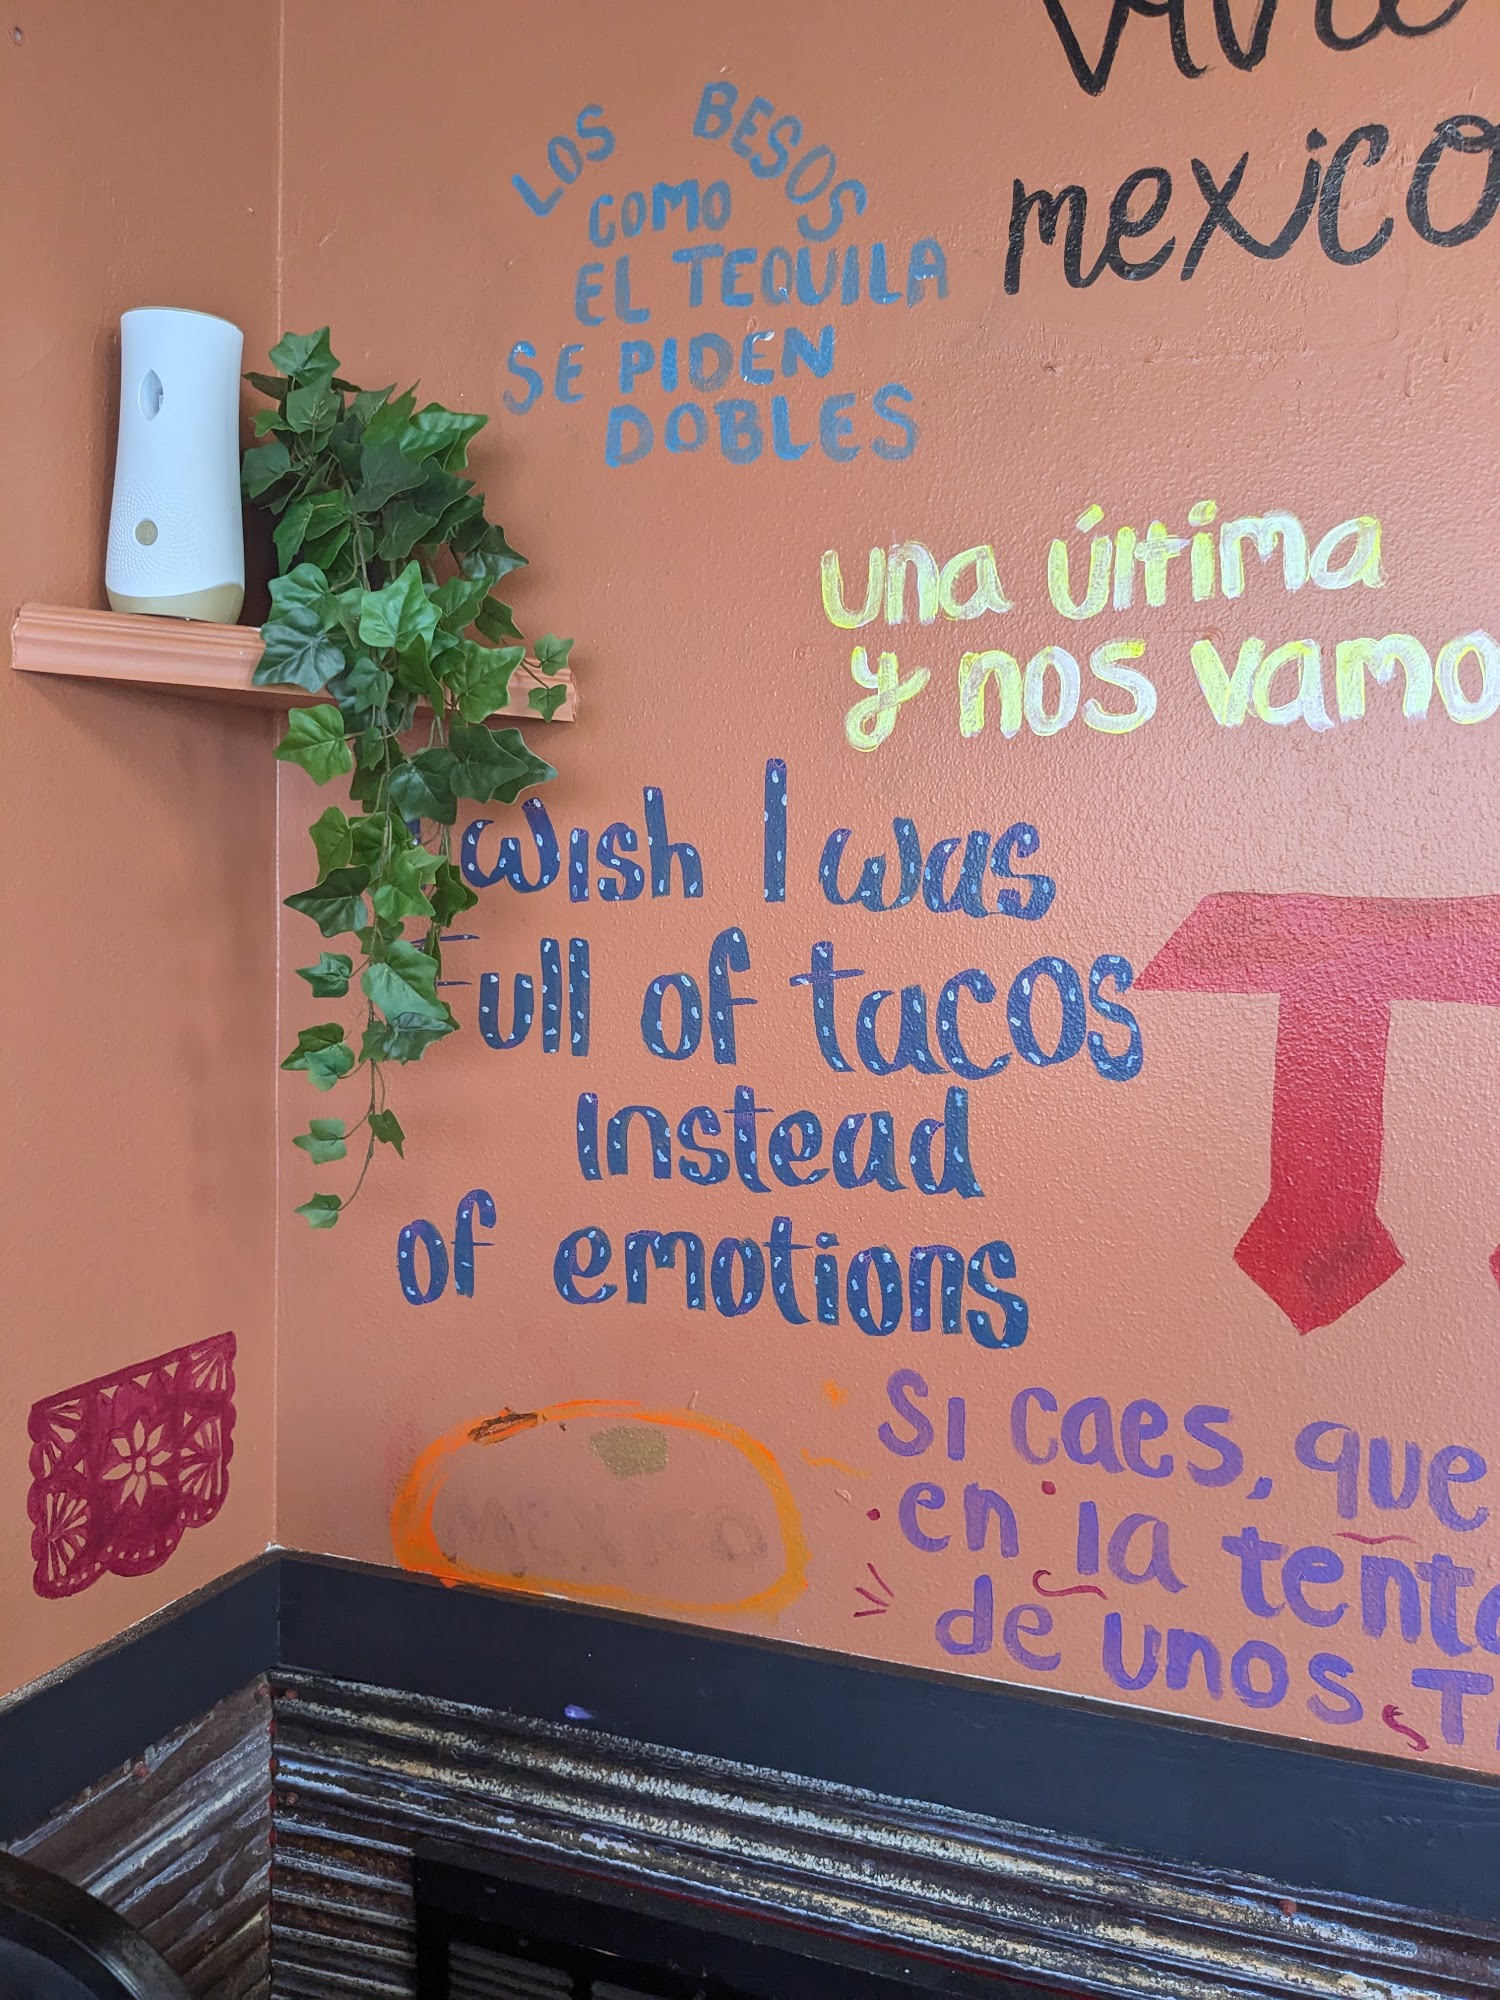 mexico
LOS BESOS
COMO
EL TEQUILA
SE PIDEN
DOBLES
una última
y nos vamo
I wish I was
Full of tacos
Instead
of emotions
Si caes, que
en la
de unos